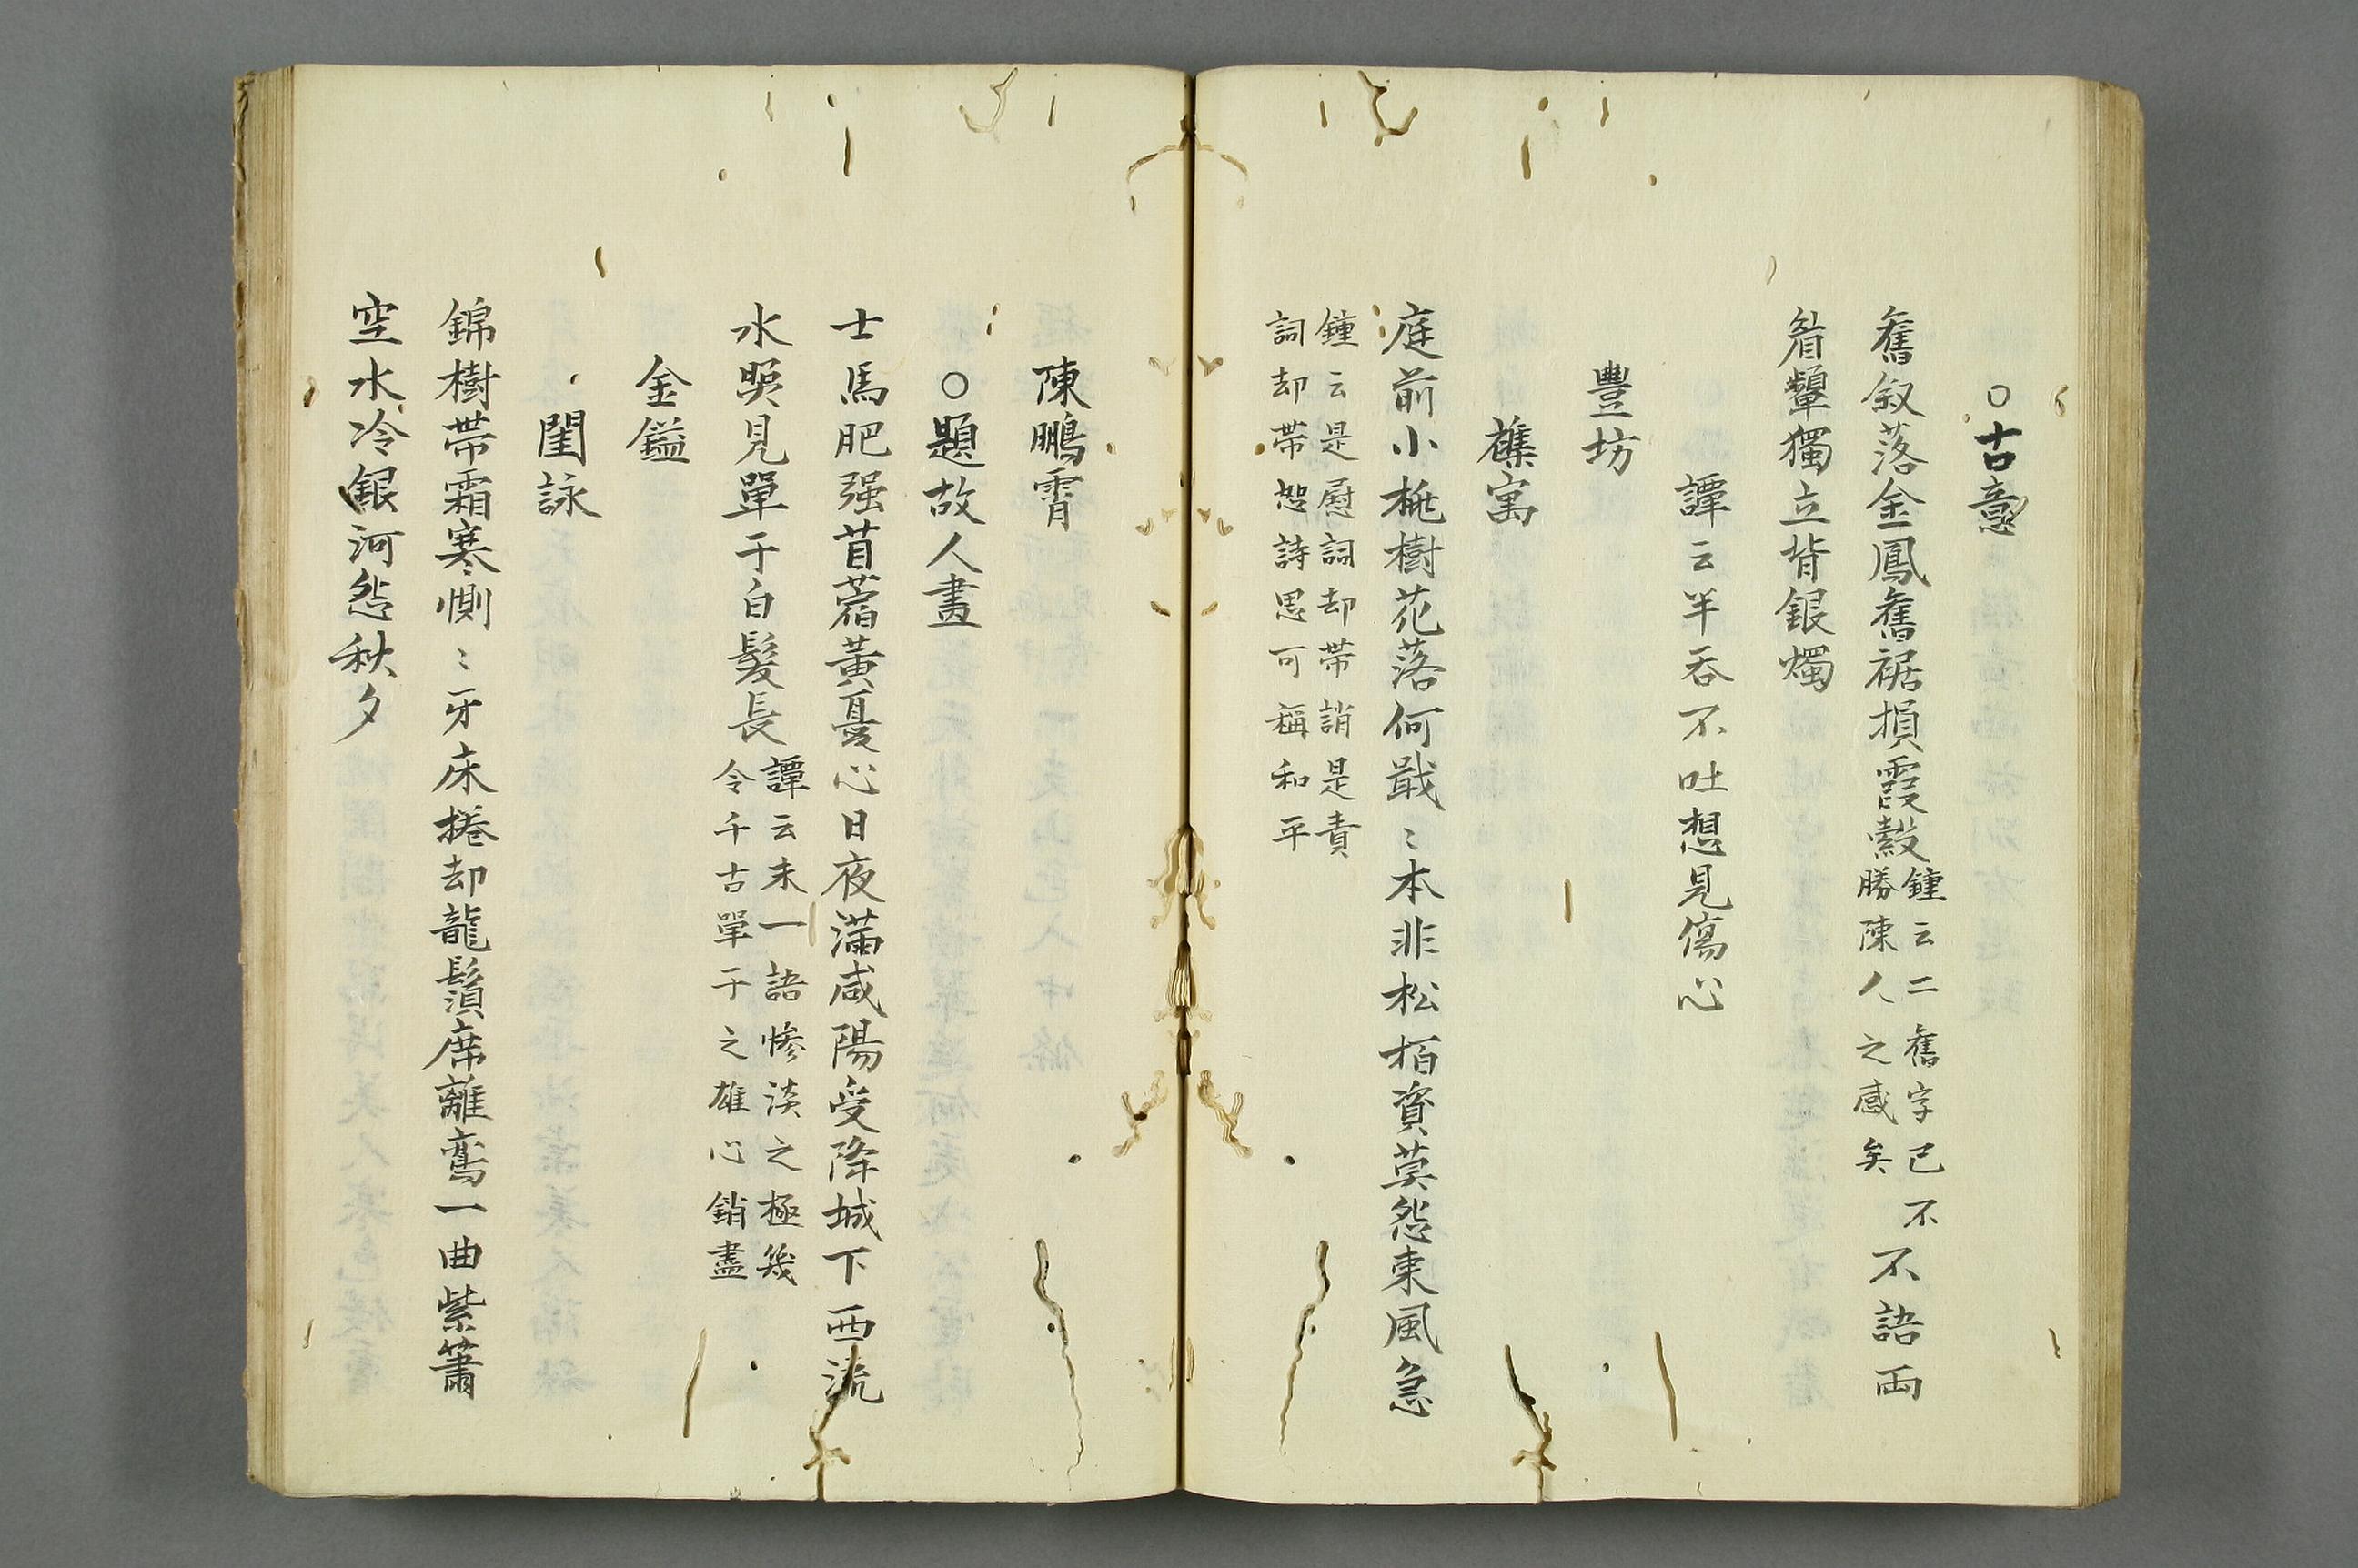 ○古意
舊釵落金鳳舊裾損霞縠鍾云二舊字已不
勝陳人之感矣不語両
眉顰獨立背銀燭
譚云半吞不吐想見傷心
豊坊
樵寓
庭前小桃樹花落何戢〻本非松栢資莫怨東風急
鍾云是慰詞却帶誚是責
詞却帶恕詩思可稱和平
陳鵬霄
○題故人畫
士馬肥强苜蓿黃憂心日夜滿咸陽受降城下西流
水照見單于白髮長譚云末一語慘淡之極幾
令千古單于之雄心銷盡
金鎰
閨詠
錦樹帶霜寒惻〻牙床捲却龍鬚席離鸾一曲紫簫
空水冷銀河怨秋夕